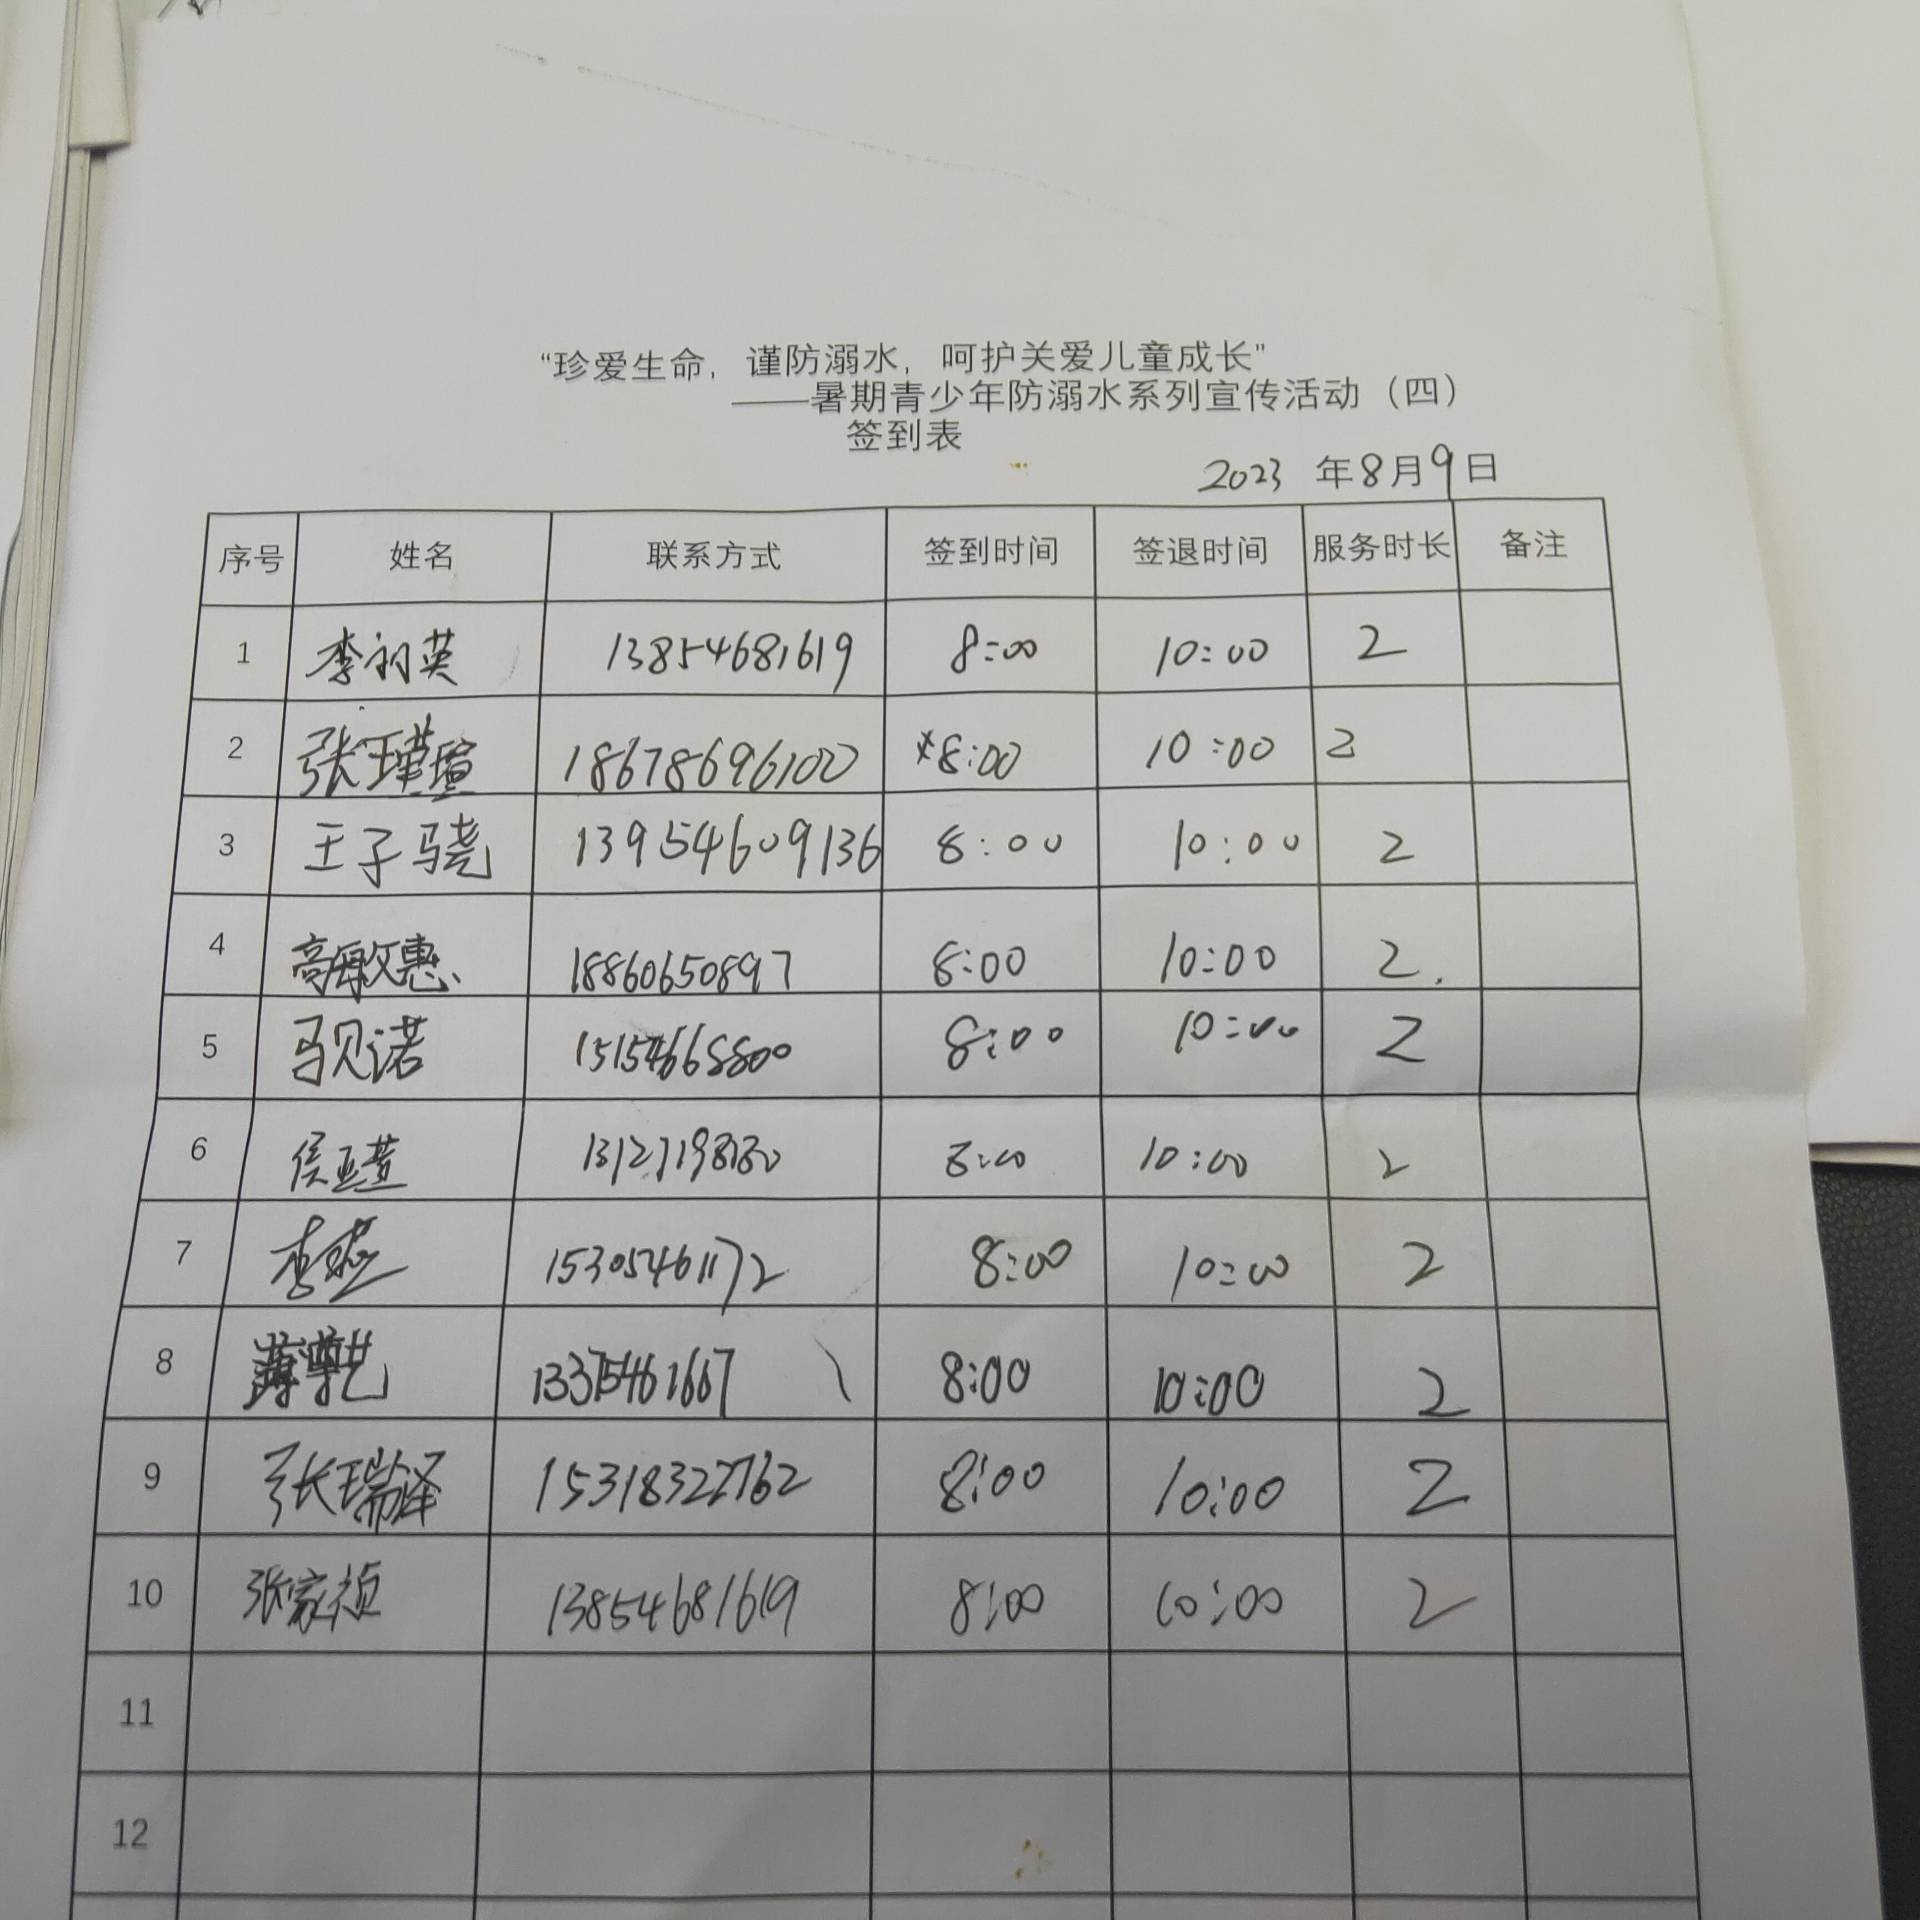 “珍爱生命，谨防溺水，呵护关爱儿童成长”
——暑期青少年防溺水系列宣传活动（四）
签到表
2023 年8月9日
序号 姓名 联系方式 签到时间 签退时间 服务时长 备注
1 李初英 13854681619 8:00 10:00 2
2 张瑾瑄 18678696100 8:00 10:00 2
3 王子骁 13954609136 8:00 10:00 2
4 高敏惠 18860650897 8:00 10:00 2
5 马贝诺 15154668800 8:00 10:00 2
6 8:00 10:00 2
7 李燕 15305461172 8:00 10:00 2
8 13375461667 8:00 10:00 2
9 张瑞泽 15318322762 8:00 10:00 2
10 张家祯 13854681619 8:00 10:00 2
11
12